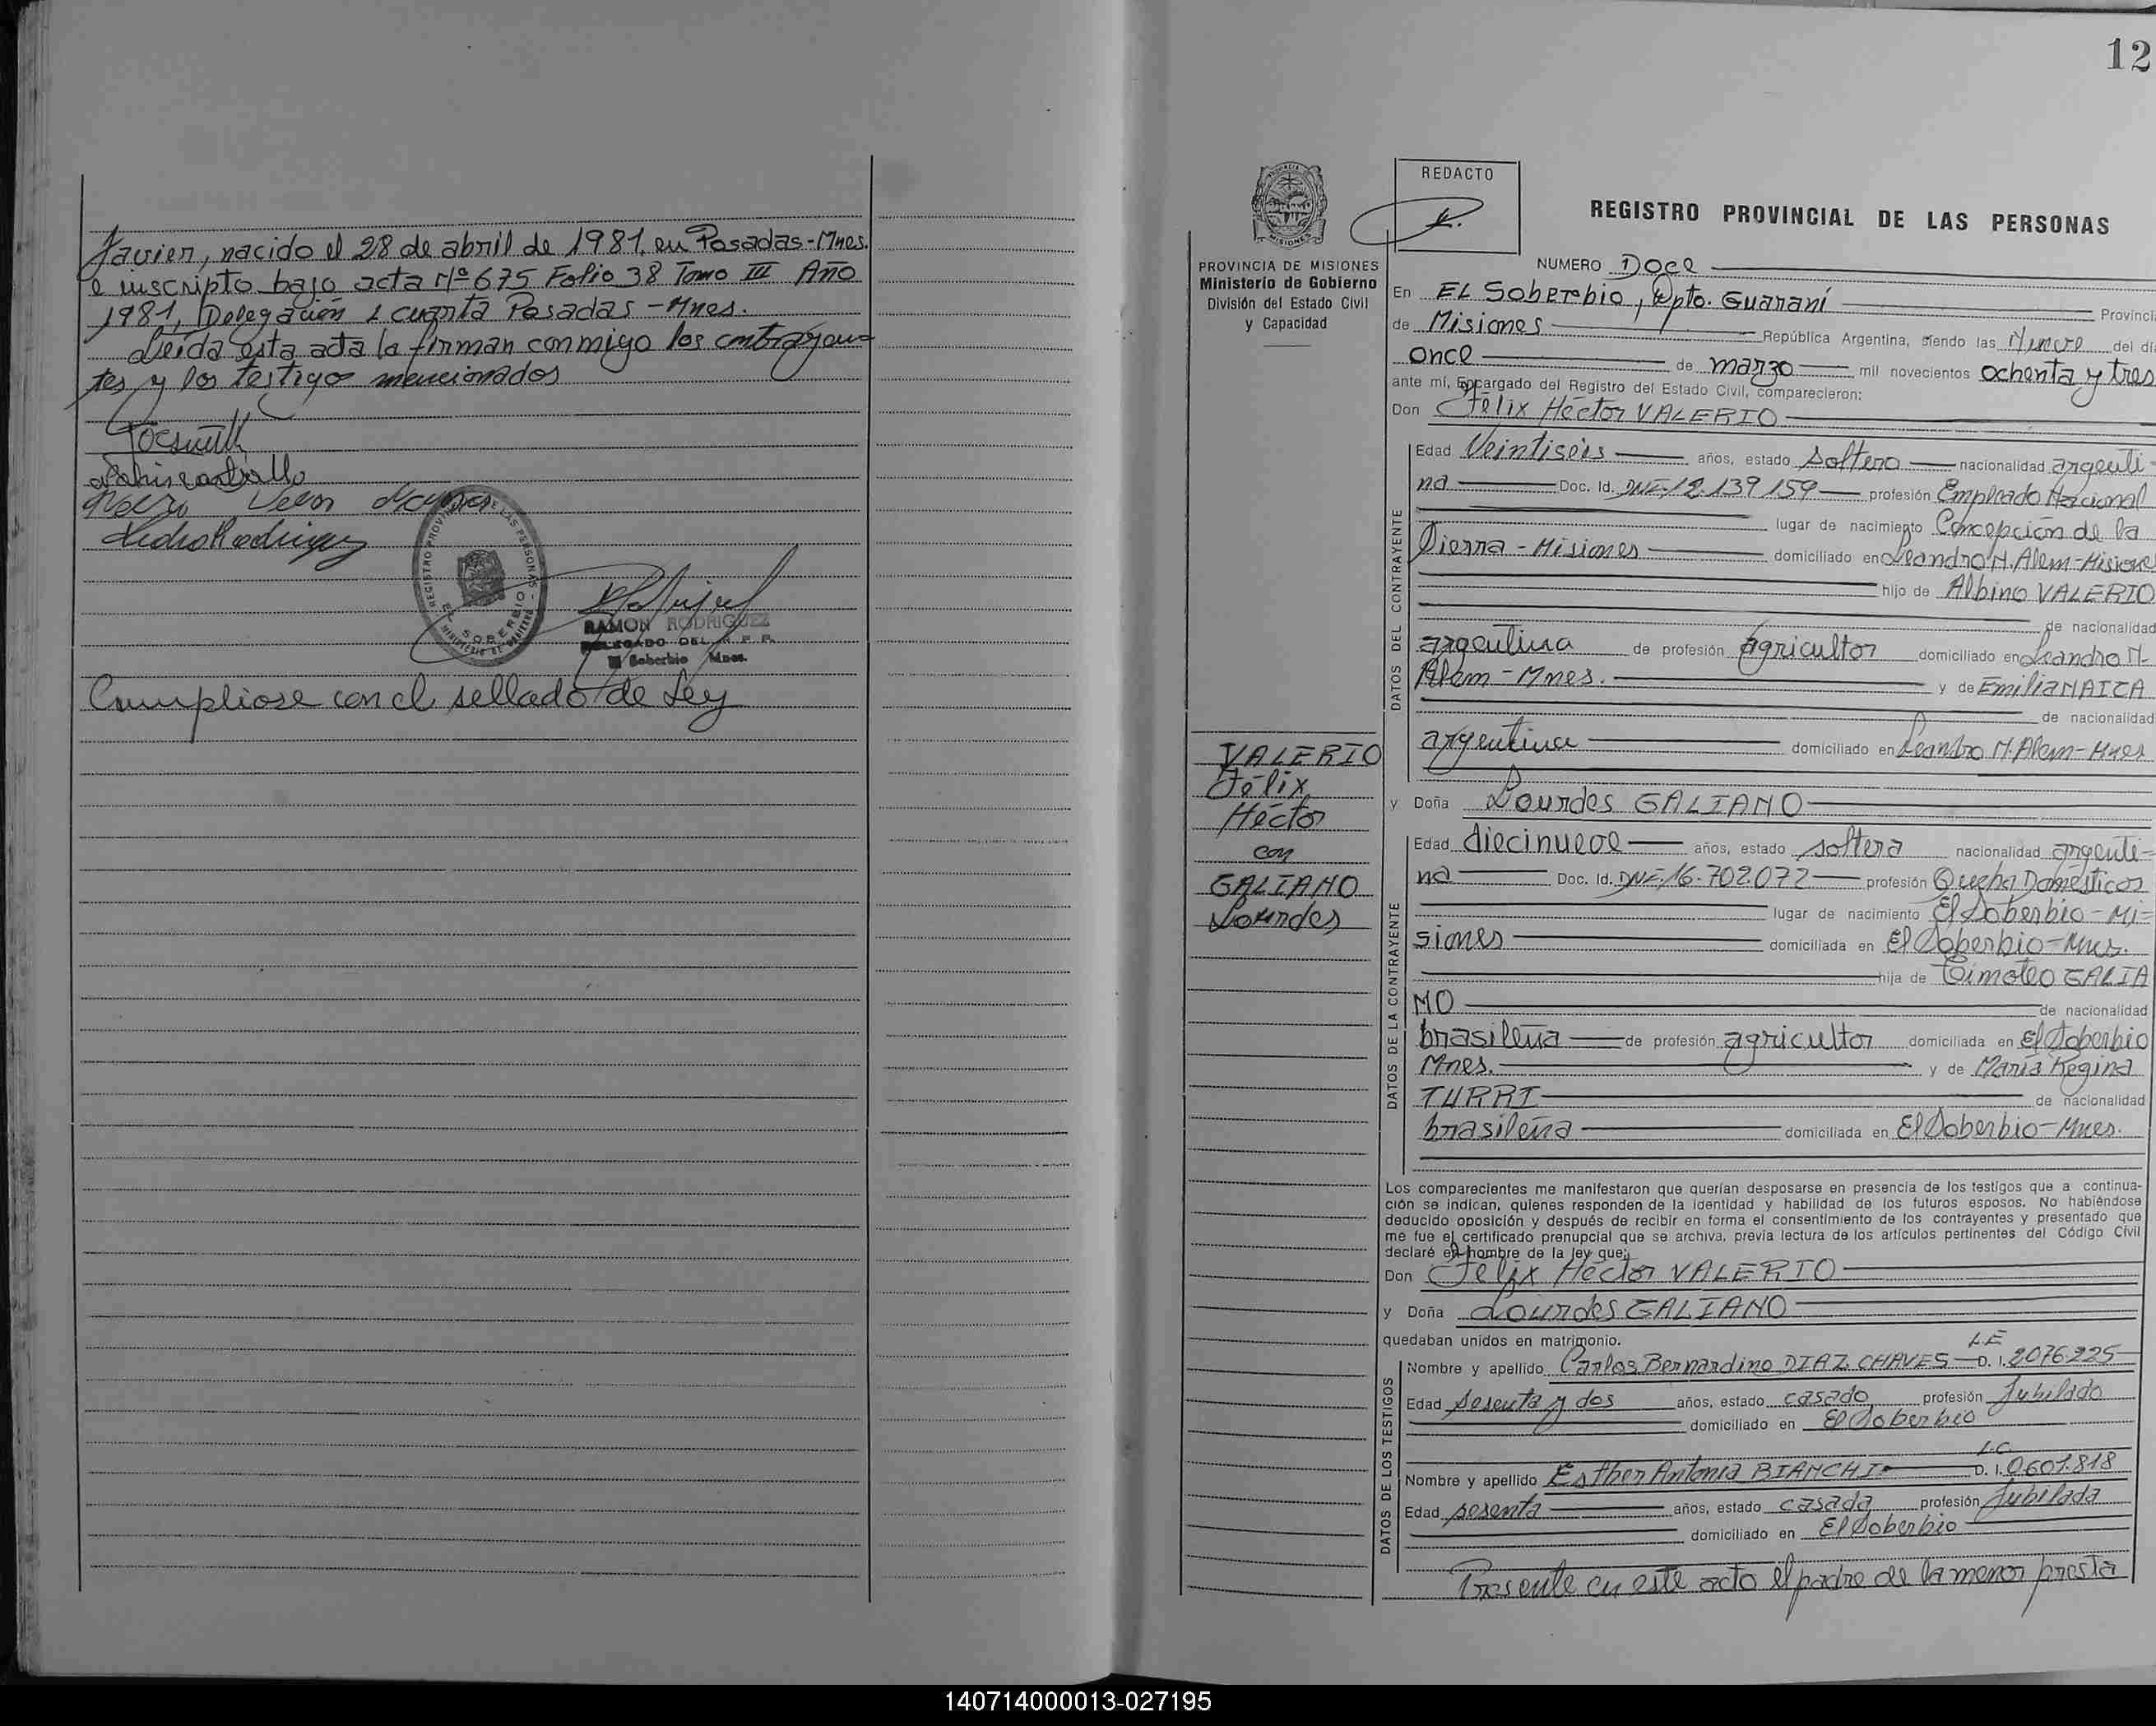 Javier, nacido el 28 de abril de 1981, en Posadas-Mnes.
e inscripto bajo acta Nº 675 Folio 38 Tomo III Año
1981, Delegación 1 cuarta Posadas-Mnes.
Leída esta acta la firman conmigo los contrayen-
tes y los testigos mencionados
Pedro Rodriguez
REGISTRO PROVINCIAL DE LAS PERSONAS
EL SOBERBIO
MINISTERIO DE GOBIERNO
RAMON RODRIGUEZ
DELEGADO DEL R. P. P.
El Soberbio Mnes.
Cumpliose con el sellado de Ley
12
PROVINCIA DE MISIONES
Ministerio de Gobierno
División del Estado Civil
y Capacidad
REDACTO
REGISTRO PROVINCIAL DE LAS PERSONAS
NUMERO Doce
En EL Soberbio, Dpto. Guaraní Provinci
de Misiones República Argentina, siendo las Nueve del dí
once de marzo mil novecientos ochenta y tres
ante mí, Encargado del Registro del Estado Civil, comparecieron:
Don Félix Héctor VALERIO
DATOS DEL CONTRAYENTE
Edad Veintiséis años, estado soltero nacionalidad argenti-
na Doc. Id. DNI-12.139159 profesión Empleado Nacional
lugar de nacimiento Concepción de la
Sierra-Misiones domiciliado en Leandro N. Alem-Misiones
hijo de Albino VALERIO
de nacionalidad
argentina de profesión agricultor domiciliado en Leandro N.
Alem-Mnes. y de Emilia
de nacionalidad
argentina domiciliado en Leandro N. Alem-Mnes
VALERIO
Félix
Héctor
con
GALIANO
Lourdes
y Doña Lourdes GALIANO
DATOS DE LA CONTRAYENTE
Edad diecinueve años, estado soltera nacionalidad argenti-
na Doc. Id. DNI-16.702072 profesión Queha Domésticos
lugar de nacimiento El Soberbio-Mi-
siones domiciliada en El Soberbio-Mnes.
hija de Timoteo GALIA
NO de nacionalidad
brasileña de profesión agricultor domiciliada en El Soberbio
Mnes. y de María Regina
TURRI de nacionalidad
brasileña domiciliada en El Soberbio-Mnes.
Los comparecientes me manifestaron que querían desposarse en presencia de los testigos que a continua-
ción se indican, quienes responden de la identidad y habilidad de los futuros esposos. No habiéndose
deducido oposición y después de recibir en forma el consentimiento de los contrayentes y presentado que
me fue el certificado prenupcial que se archiva, previa lectura de los artículos pertinentes del Código Civil
declaré en nombre de la ley que:
Don Félix Héctor VALERIO
y Doña Lourdes GALIANO
quedaban unidos en matrimonio.
DATOS DE LOS TESTIGOS
L.E
Nombre y apellido Carlos Bernardino DIAZ CHAVES D. I. 2076225
Edad sesenta y dos años, estado casado profesión Jubilado
domiciliado en El Soberbio
L.C.
Nombre y apellido Esther Antonia BIANCHI D. I. 0601.818
Edad sesenta años, estado casada profesión Jubilada
domiciliado en El Soberbio
Presente en este acto el padre de la menor presta
140714000013-027195